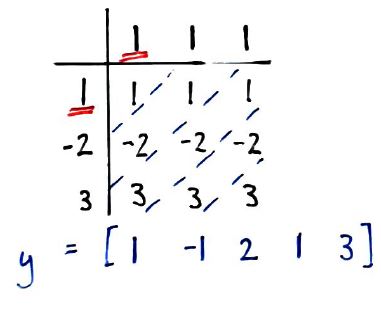 1 1 1
1 1 1 1
-2 -2 -2 -2
3 3 3 3
y = [1 -1 2 1 3]